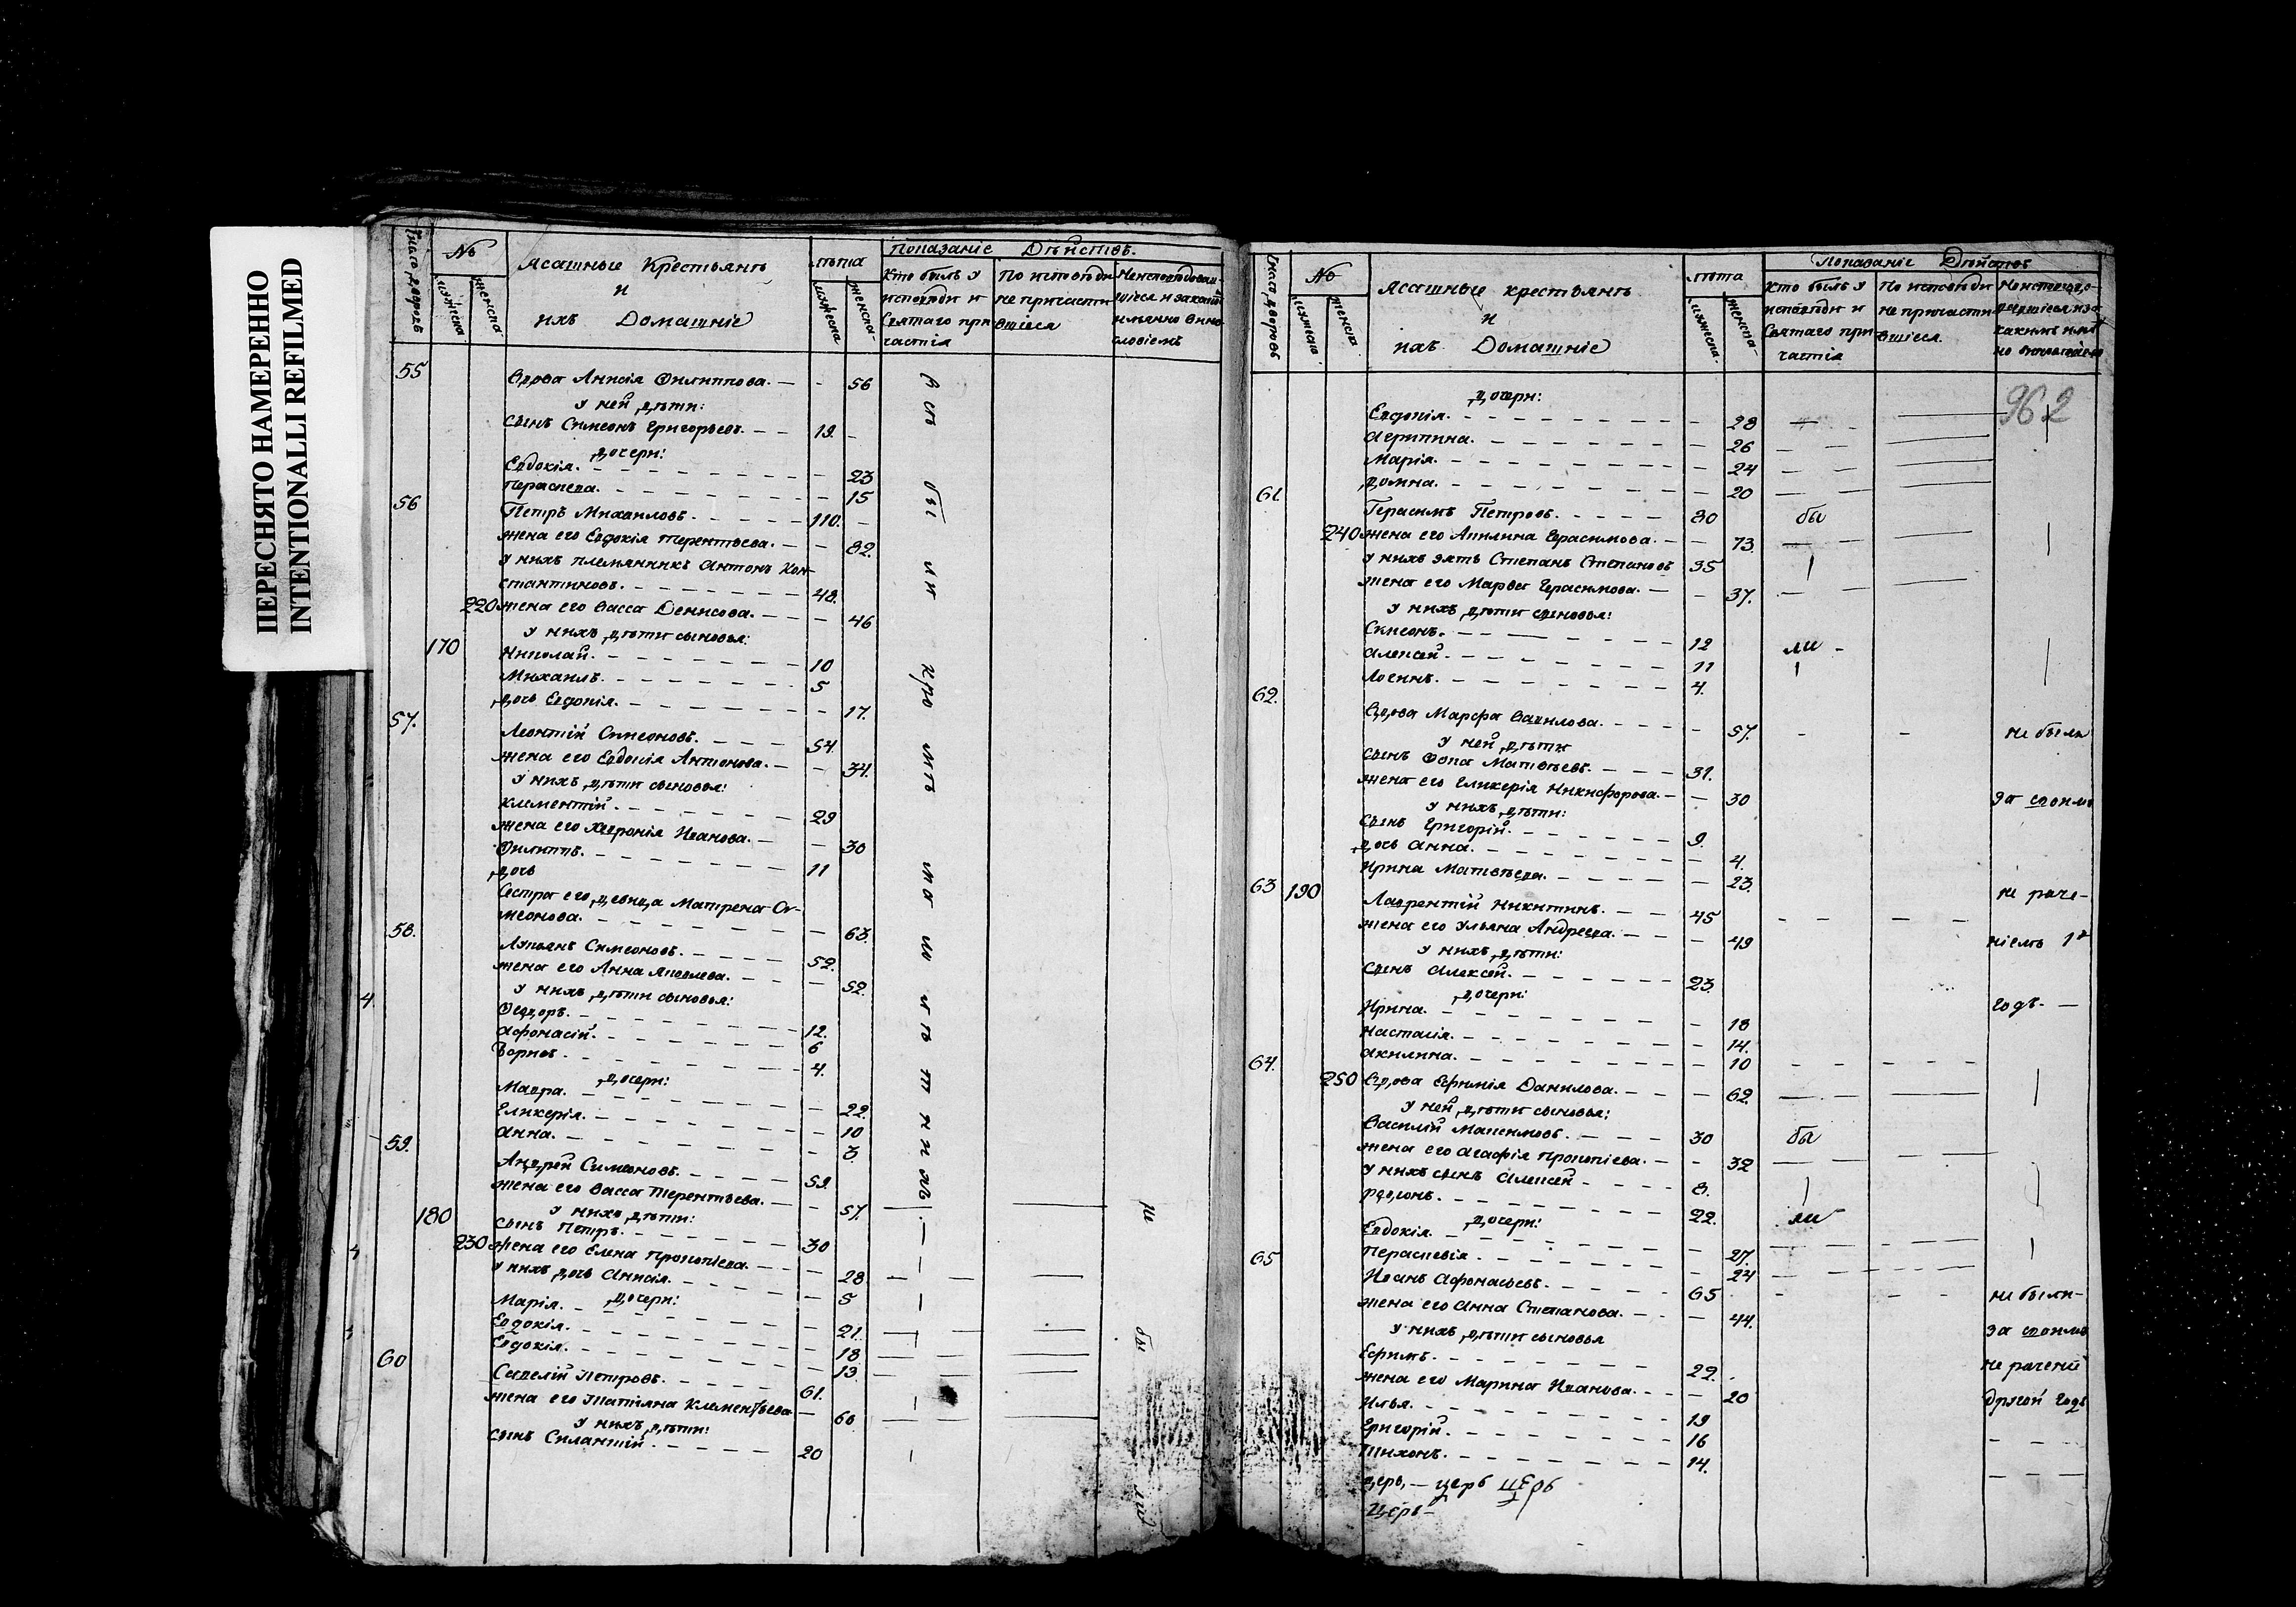 ПЕРЕСНЯТО НАМЕРЕННО
INTENTIONALLI REFILMED
Число дворовъ
№
мужеска
женска
Ясашные Крестьянъ
и
ихъ Домашніе
лѣта
мужеска
женска
Показаніе Дѣйствъ.
Кто былъ у
исповѣди и
Святаго при
частія
По исповѣди
не причасти
вшіеся
55
Вдова Анисія Филиппова. — - 56
У ней дѣти:
Сынъ Симеонъ Григорьевъ. 19.
дочери:
Евдокія. 23
Параскева. 15
56
Петръ Михаиловъ. 110.
жена его Евдокія Терентьева. 82.
У нихъ племянникъ Антонъ Кон-
стантиновъ. 48.
220 жена его Васса Денисова. 46
У нихъ дѣти сыновья:
170 Николай. 10
Михаилъ. 5
дочь Евдокія. 17.
57.
Леонтій Симеоновъ. 54.
жена его Евдокія Антонова. 34.
У нихъ дѣти сыновья:
Климентій. 29
жена его Хевронія Иванова. 30
Филиппъ. 11
дочь
Сестра его девица Матрена Си-
меонова. 63.
58.
Лукьянъ Симеоновъ. 52.
жена его Анна Яковлева. 52.
У нихъ дѣти сыновья:
Ѳедоръ. 12.
Афонасій. 6
Борисъ. 4.
дочери:
Мавра. 22.
Гликерія. 10
Анна. 3.
59.
Андрей Симеоновъ. 59.
жена его Васса Терентьева. 57.
У нихъ дѣти:
180 Сынъ Петръ. 30
230 жена его Елена Прокопіева. 28
У нихъ дочь Анисія. 5
дочери:
Марія. 21.
Евдокія. 18
Евдокія. 13
60
Савелій Петровъ. 61.
жена его Татіяна Климентьева 60.
У нихъ дѣти:
Сынъ Силантій. 20
всѣ бы ли
не бы ли
Число дворовъ
№
мужеска
женска
Ясашные крестьянъ
и
ихъ Домашніе
лѣта
мужеска
женска
Показаніе Дѣйствъ
Кто былъ у
исповѣди и
Святаго при
частія
По исповѣди
не причасти
вшіеся
962
дочери:
Евдокія. 28
Агрипина. 26
Марія. 24
Домна. 20
61.
Герасимъ Петровъ. 80 бы
240 жена его Акилина Герасимова. 73.
У нихъ зять Степанъ Степановъ 35
жена его Марѳа Герасимова. 37.
У нихъ дѣти сыновья:
Симеонъ. 12 ли
Алексей. 11
Логинъ. 4.
62.
Вдова Марфа Данилова. 57. не были
У ней дѣти
Сынъ Фока Матвѣевъ. 31.
жена его Гликерія Никифорова. 30 за своимъ
У нихъ дѣти:
Сынъ Григорій. 9.
дочь Анна. 4.
Ирина Матвѣева. 23.
63 190 не раче-
Лаврентій Никитинъ. 45
жена его Ульяна Андреева. 49 ніемъ 1й
У нихъ дѣти:
Сынъ Алексей. 23.
дочери: годъ
Ирина. 18
Настасія. 14.
Акилина. 10
64.
250 Вдова Ефимія Данилова. 62.
У ней дѣти сыновья:
Василій Максимовъ. 30 бы
жена его Агафія Прокопіева. 32
У нихъ сынъ Алексей 8.
Родіонъ. 22. ли
дочери:
Евдокія. 27.
Параскевія. 24
65
Иванъ Афонасьевъ. 65 не были-
жена его Анна Степанова. 44.
У нихъ дѣти сыновья за своимъ
Ефимъ. 22. не рачені
жена его Марина Иванова. 20
Илья. 19 другой годъ
Григорій. 16
Тихонъ. 14.
церь, — церь цЕрь
Церь-